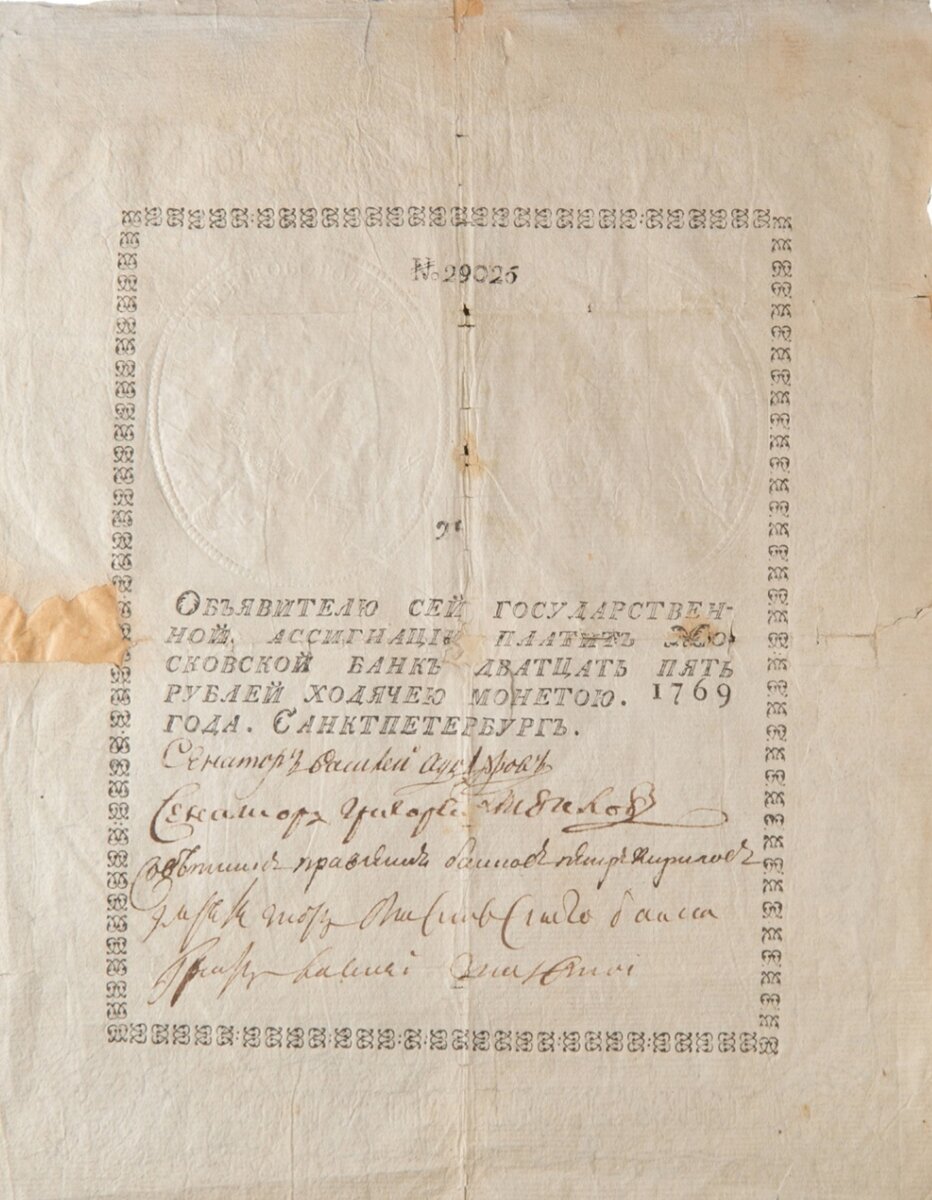 № 29025
Объявителю сей государствен-
ной ассигнаціи платитъ Мо
сковской банкъ дватцать пять
рублей ходячею монетою. 1769
года. Санктпетербургъ.
Сенаторъ василей
Сенаторъ григорей
Советникъ правления банковъ петръ Кириловъ
директоръ банка
графъ